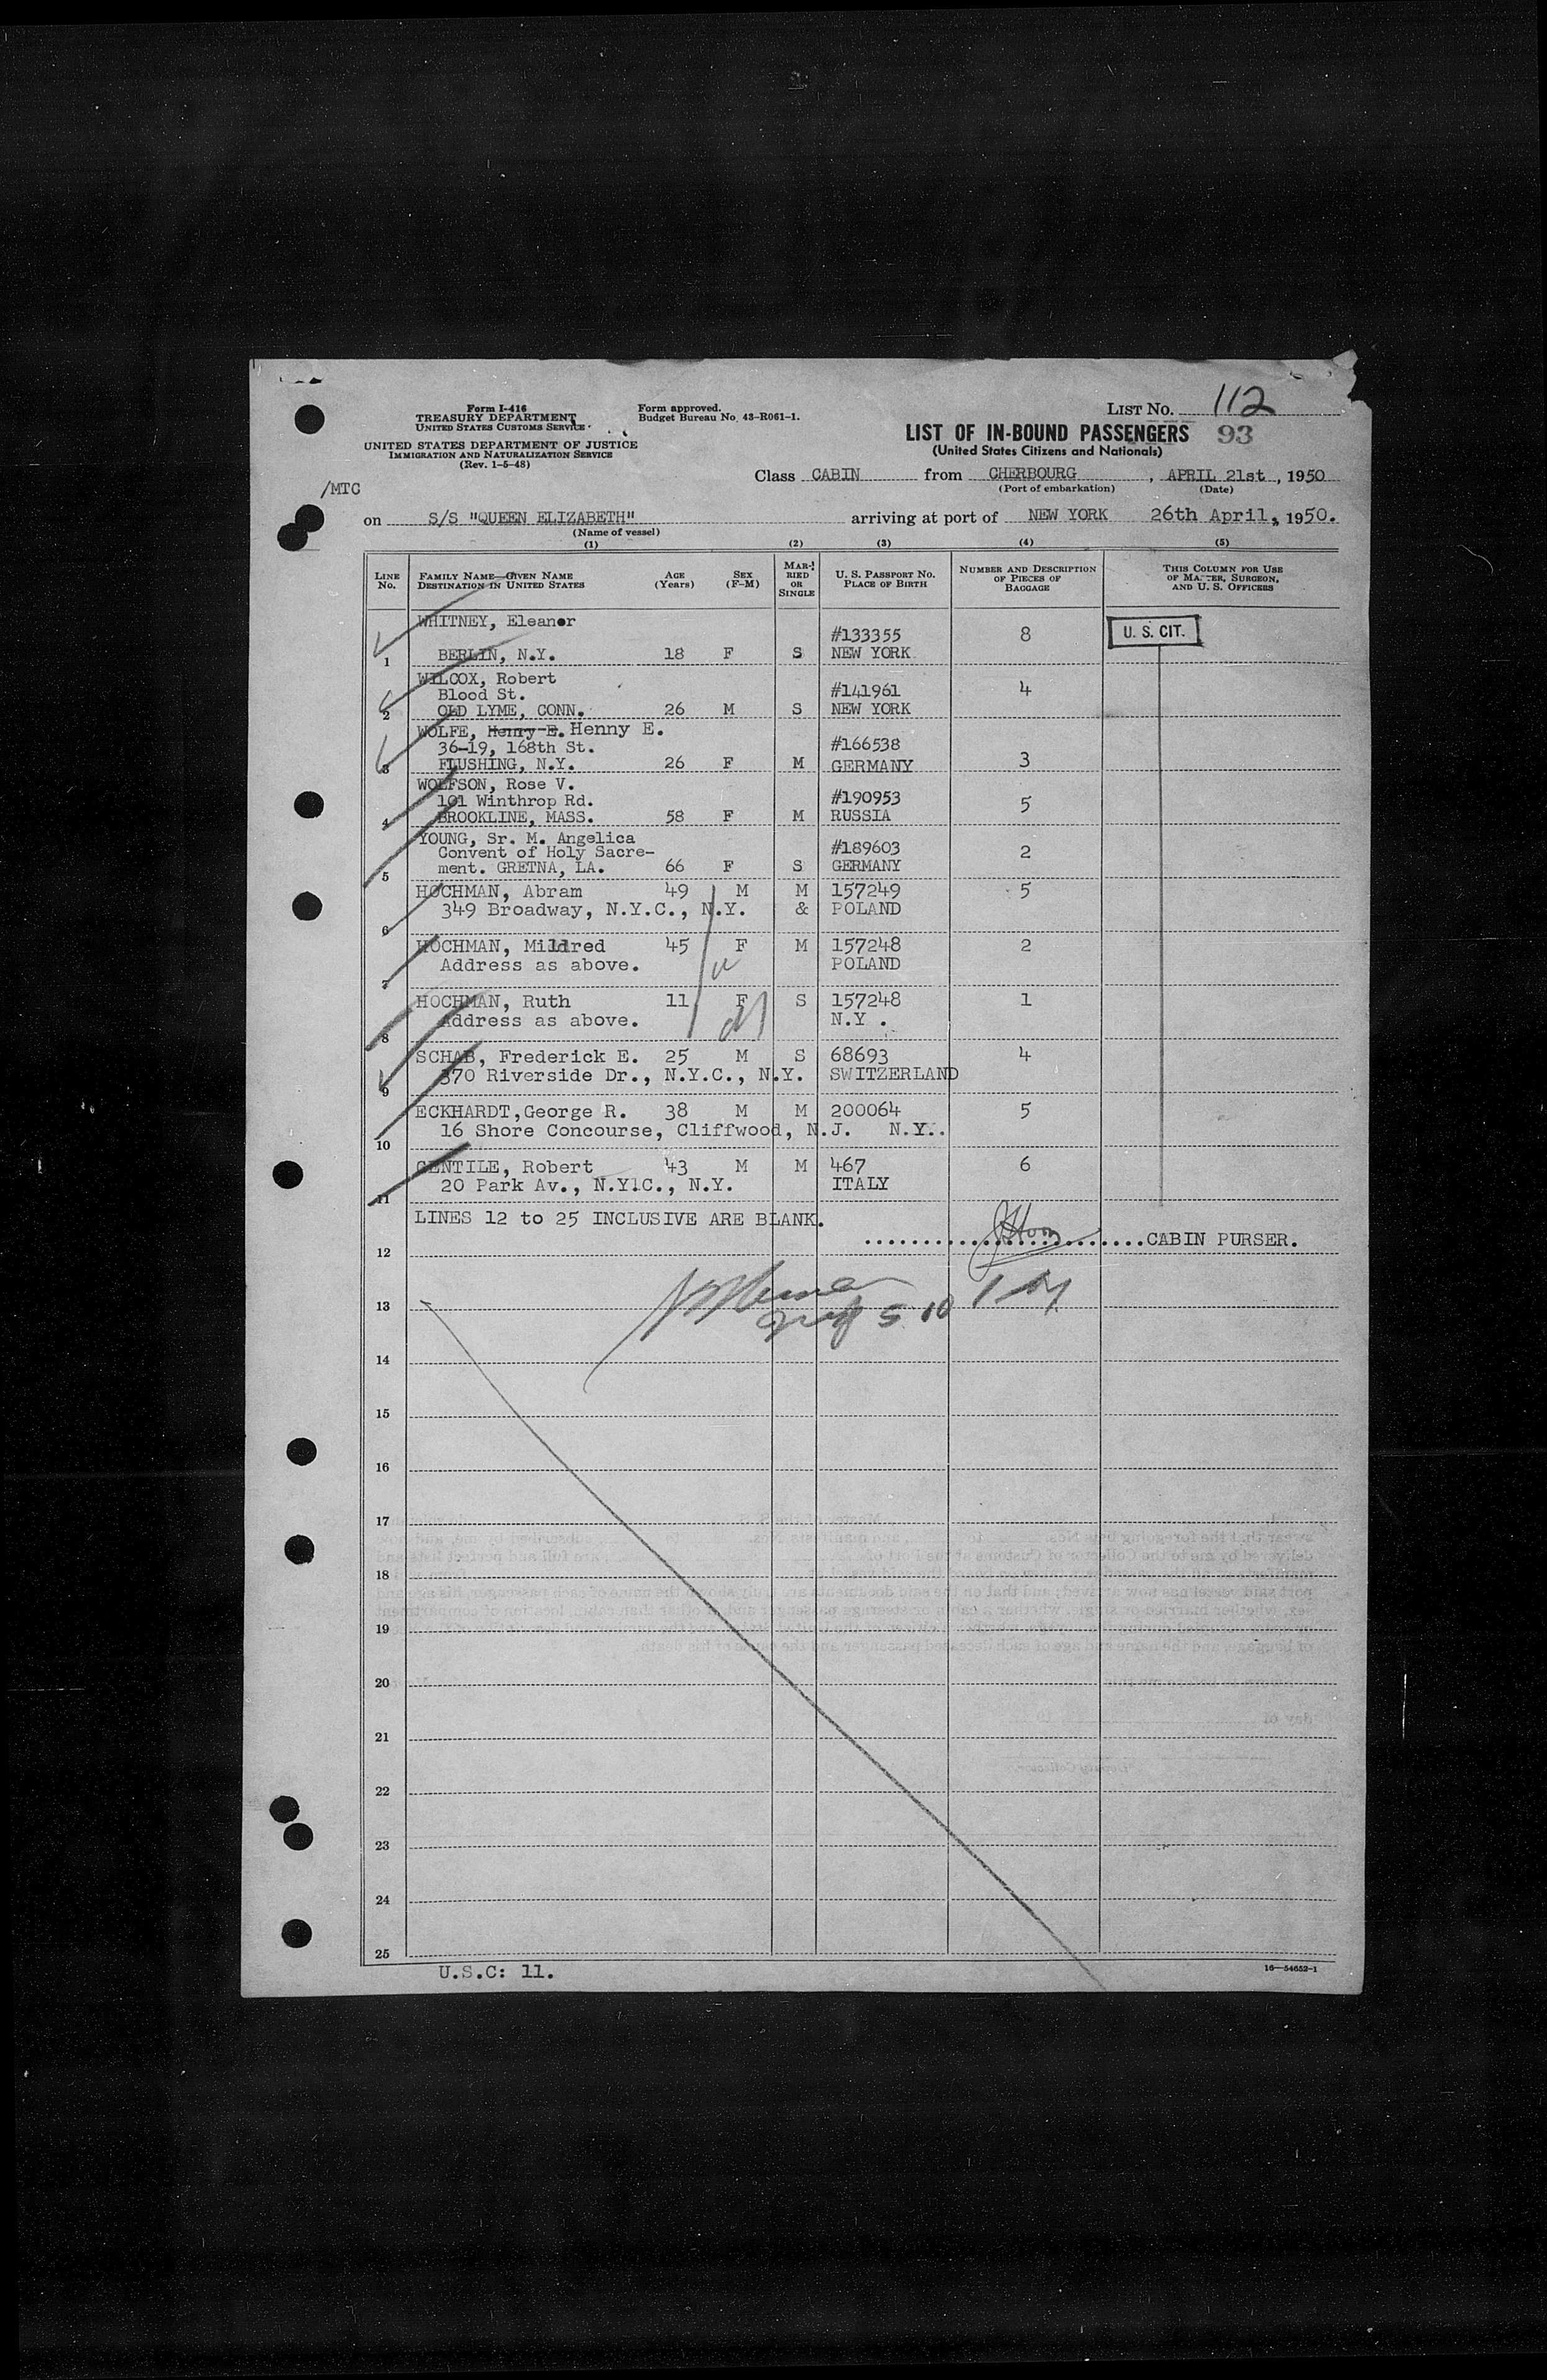 Form I-416
TREASURY DEPARTMENT
UNITED STATES CUSTOMS SERVICE
UNITED STATES DEPARTMENT OF JUSTICE
IMMIGRATION AND NATURALIZATION SERVICE
(Rev. 1-5-48)
Form approved.
Budget Bureau No. 43-R061-1.
LIST NO. 112
LIST OF IN-BOUND PASSENGERS 93
(United States Citizens and Nationals)
/MTC
Class CABIN from CHERBOURG, APRIL 21st, 1950
(Port of embarkation) (Date)
on S/S "QUEEN ELIZABETH" arriving at port of NEW YORK 26th April, 1950.
(Name of vessel)
(1) (2) (3) (4) (5)
LINE NO. FAMILY NAME—GIVEN NAME DESTINATION IN UNITED STATES AGE (Years) SEX (F-M) MARRIED OR SINGLE U. S. PASSPORT NO. PLACE OF BIRTH NUMBER AND DESCRIPTION OF PIECES OF BAGGAGE THIS COLUMN FOR USE OF MASTER, SURGEON, AND U. S. OFFICERS
WHITNEY, Eleanor #133355 8 U. S. CIT.
1 BERLIN, N.Y. 18 F S NEW YORK
WILCOX, Robert
Blood St. #141961 4
2 OLD LYME, CONN. 26 M S NEW YORK
WOLFE, Henry E. Henny E.
36-19, 168th St. #166538
3 FLUSHING, N.Y. 26 F M GERMANY 3
WOLFSON, Rose V.
101 Winthrop Rd. #190953 5
4 BROOKLINE, MASS. 58 F M RUSSIA
YOUNG, Sr. M. Angelica
Convent of Holy Sacre- #189603 2
5 ment. GRETNA, LA. 66 F S GERMANY
HOCHMAN, Abram 49 M M 157249 5
349 Broadway, N.Y.C., N.Y. & POLAND
6
HOCHMAN, Mildred 45 F M 157248 2
Address as above. POLAND
7
HOCHMAN, Ruth 11 F S 157248 1
Address as above. N.Y .
8
SCHAB, Frederick E. 25 M S 68693 4
370 Riverside Dr., N.Y.C., N.Y. SWITZERLAND
9
ECKHARDT,George R. 38 M M 200064 5
16 Shore Concourse, Cliffwood, N.J. N.Y..
10
GENTILE, Robert 43 M M 467 6
20 Park Av., N.YlC., N.Y. ITALY
11
LINES 12 to 25 INCLUSIVE ARE BLANK.
............................CABIN PURSER.
12
13
14
15
16
17
18
19
20
21
22
23
24
25
U.S.C: 11.
16—54652-1